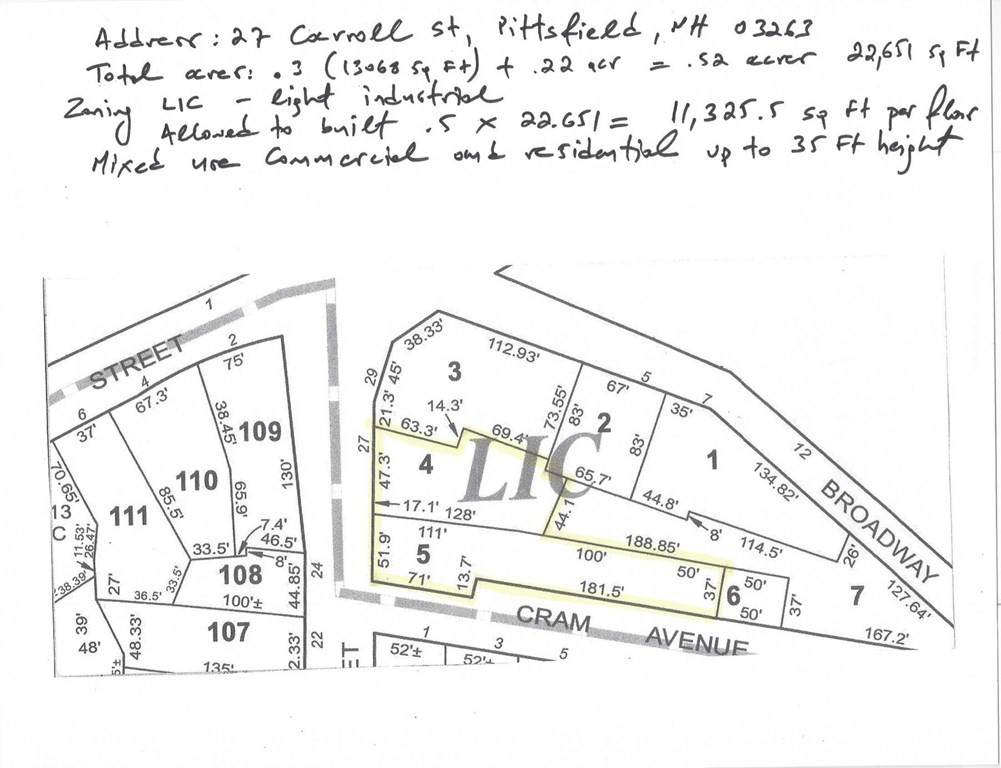 Address: 27 Carroll st, Pittsfield, NH 03263
Total acres: .3 (13068 sq Ft) + .22 acr = .52 acres 22,651 sq Ft
Zoning LIC - light industrial
Allowed to built .5 x 22.651 = 11,325.5 sq ft per floor
Mixed use commercial and residential up to 35 Ft height
1
STREET
2
75'
4
67.3'
6
37'
38.33'
3
112.93'
29
45'
21.3'
14.3'
63.3'
69.4'
73.55'
83'
67'
5
2
7
35'
83'
1
12
134.82'
BROADWAY
109
38.45'
130'
110
65.9'
85.5'
70.65'
13
C
111
11.53'
26.47'
38.39'
27'
33.5'
7.4'
46.5'
8'
108
33.5'
36.5'
100'±
44.85'
24
27
47.3'
4
LIC
65.7'
44.1'
44.8'
8'
114.5'
26'
17.1'
128'
111'
51.9'
5
71'
13.7'
100'
188.85'
50'
181.5'
37'
6
50'
50'
37'
7
127.64'
167.2'
39'
48'
48.33'
107
135'
2.33'
22
ET
CRAM AVENUE
1
52'±
3
52'±
5